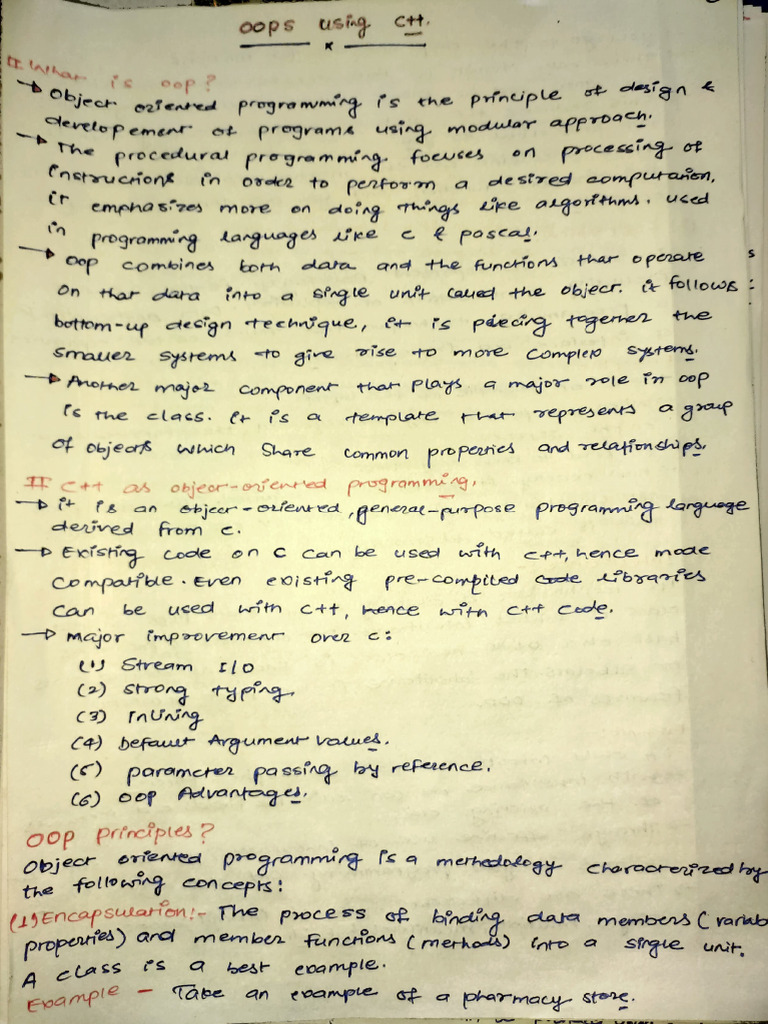 OOPS using C++.
x
I. What is oop?
→ Object oriented programming is the principle of design &
developement of programs using modular approach.
→ The procedural programming focuses on processing of
instructions in order to perform a desired computation,
it emphasizes more on doing things like algorithms. used
in programming languages like c & pascal.
→ OOP combines both data and the functions that operate
on that data into a single unit called the object. it follows
bottom-up design technique, it is piecing together the
smaller systems to give rise to more complex systems.
→ Another major component that plays a major role in oop
is the class. it is a template that represents a group
of objects which share common properties and relationships.
II C++ as object-oriented programming.
→ it is an object-oriented, general-purpose programming language
derived from c.
→ Existing code on C can be used with c++, hence mode
compatible. Even existing pre-compiled code libraries
can be used with C++, hence with C++ Code.
→ Major improvement over c:
(1) Stream I/O
(2) strong typing.
(3) Inlining
(4) Default Argument values.
(5) parameter passing by reference.
(6) OOP Advantages.
OOP principles?
Object oriented programming is a methodology characterized by
the following concepts:
(1) Encapsulation:- The process of binding data members (variab
properties) and member functions (methods) into a single unit.
A class is a best example.
Example - Take an example of a pharmacy store.